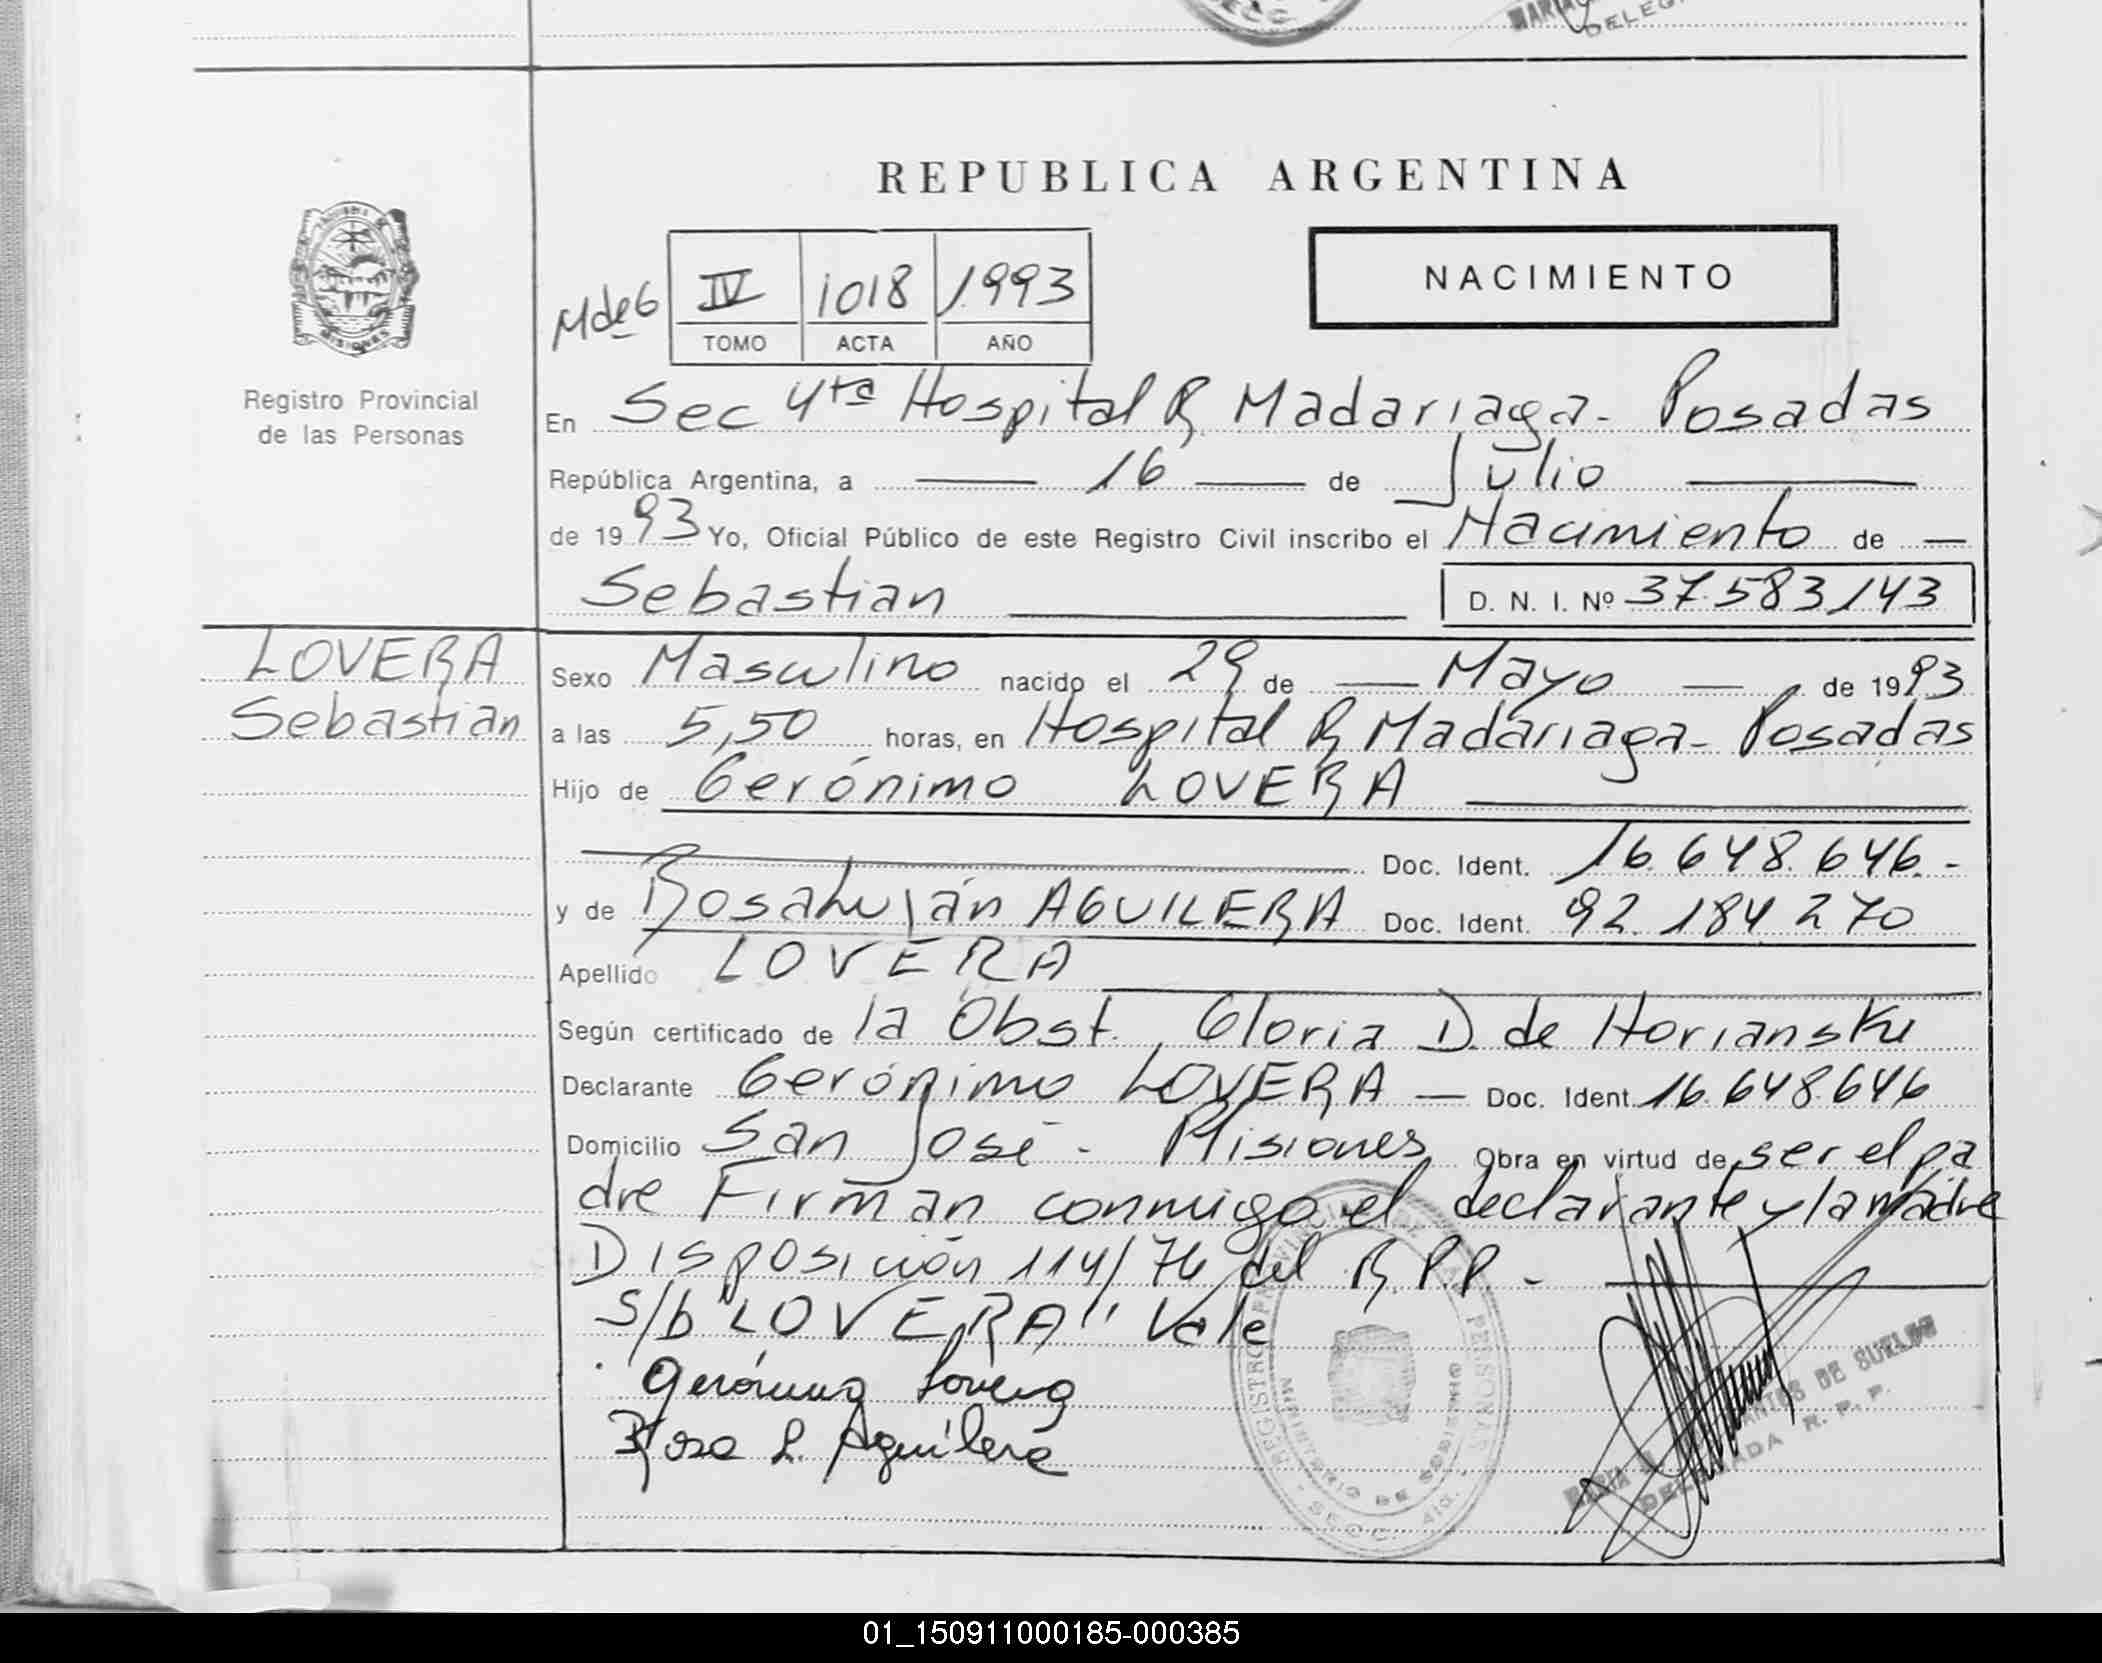 REPUBLICA ARGENTINA
NACIMIENTO
IV 1018 1993
TOMO ACTA AÑO
Registro Provincial
de las Personas
En Sec 4ta Hospital R. Madariaga - Posadas
República Argentina, a 16 de Julio
de 1993 Yo, Oficial Público de este Registro Civil inscribo el Nacimiento de
Sebastian D. N. I. Nº 37.583143
LOVERA
Sebastian
Sexo Masculino nacido el 29 de Mayo de 1993
a las 5,50 horas, en Hospital R. Madariaga - Posadas
Hijo de Gerónimo LOVERA
Doc. Ident. 16.648.646.-
y de Rosa Luján AGUILERA Doc. Ident. 92.184 270
Apellido LOVERA
Según certificado de la Obst. Gloria D. de Horianski
Declarante Gerónimo LOVERA — Doc. Ident. 16.648.646
Domicilio San José - Misiones Obra en virtud de ser el pa
dre Firman conmigo el declarante y la madre
Disposición 114/76 del R.P.P. -
S/b "LOVERA" Vale
Gerónimo Lovera
Rosa L. Aguilera
REGISTRO PROVINCIAL DE LAS PERSONAS
MINISTERIO DE GOBIERNO
SECC. 4ta.
DE SUELDO
DELEGADA R. P. P.
01_150911000185-000385